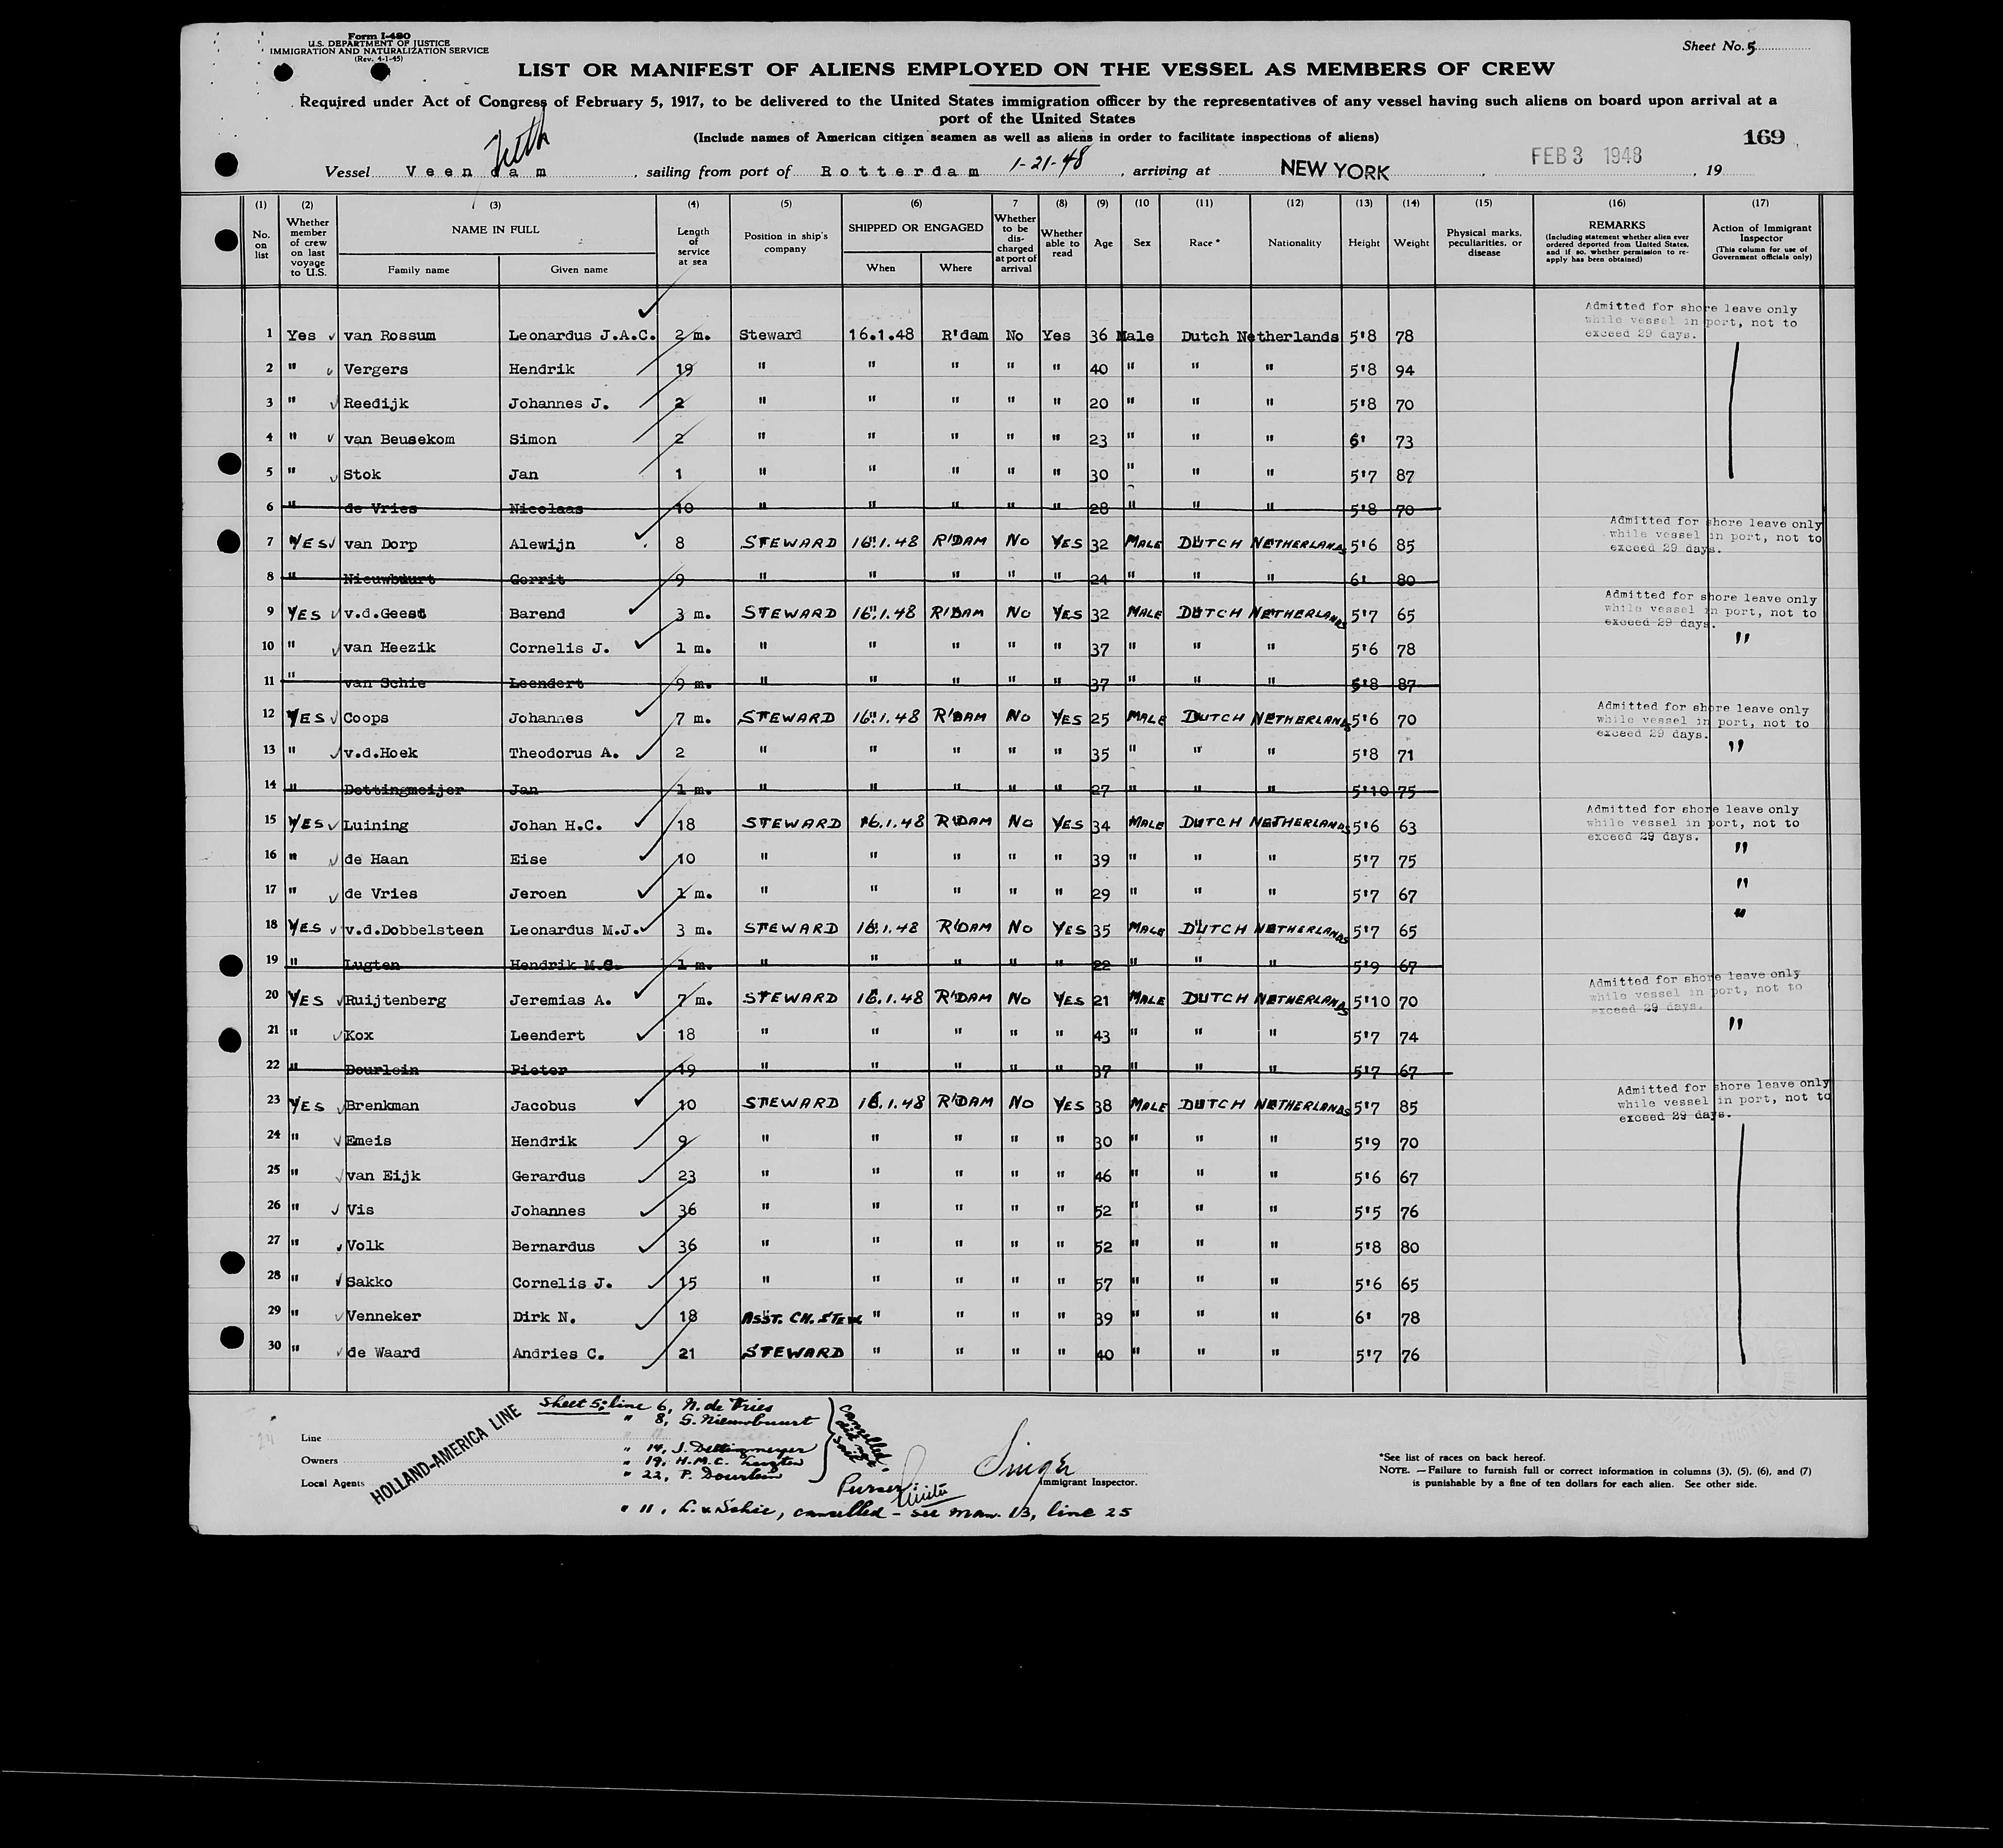 Form I-480
U.S. DEPARTMENT OF JUSTICE
IMMIGRATION AND NATURALIZATION SERVICE
(Rev. 4-1-45)
Sheet No. 5
LIST OR MANIFEST OF ALIENS EMPLOYED ON THE VESSEL AS MEMBERS OF CREW
Required under Act of Congress of February 5, 1917, to be delivered to the United States immigration officer by the representatives of any vessel having such aliens on board upon arrival at a
port of the United States
(Include names of American citizen seamen as well as aliens in order to facilitate inspections of aliens)
169
Vessel Veendam, sailing from port of Rotterdam 1-21-48, arriving at NEW YORK, FEB 3 1948, 19
(1) (2) (3) (4) (5) (6) 7 (8) (9) (10 (11) (12) (13) (14) (15) (16) (17)
No. on list
Whether member of crew on last voyage to U.S.
NAME IN FULL
Family name Given name
Length of service at sea
Position in ship's company
SHIPPED OR ENGAGED
When Where
Whether to be discharged at port of arrival
Whether able to read
Age
Sex
Race *
Nationality
Height
Weight
Physical marks, peculiarities, or disease
REMARKS
(Including statement whether alien ever ordered deported from United States, and if so, whether permission to re-apply has been obtained)
Action of Immigrant Inspector
(This column for use of Government officials only)
Admitted for shore leave only
while vessel in port, not to
exceed 29 days.
1 Yes van Rossum Leonardus J.A.C. 2 m. Steward 16.1.48 R'dam No Yes 36 Male Dutch Netherlands 5'8 78
2 " Vergers Hendrik 19 " " " " " 40 " " " 5'8 94
3 " Reedijk Johannes J. 2 " " " " " 20 " " " 5'8 70
4 " van Beusekom Simon 2 " " " " " 23 " " " 6' 73
5 " Stok Jan 1 " " " " " 30 " " " 5'7 87
6 " de Vries Nicolaas 10 " " " " " 28 " " " 5'8 70
7 YES van Dorp Alewijn 8 STEWARD 16.1.48 R'DAM NO YES 32 MALE DUTCH NETHERLANDS 5'6 85 Admitted for shore leave only
while vessel in port, not to
exceed 29 days.
8 " Nieuwbuurt Gerrit 9 " " " " " 24 " " " 6' 80
9 YES v.d.Geest Barend 3 m. STEWARD 16.1.48 R'DAM NO YES 32 MALE DUTCH NETHERLANDS 5'7 65 Admitted for shore leave only
while vessel in port, not to
exceed 29 days.
10 " van Heezik Cornelis J. 1 m. " " " " " 37 " " " 5'6 78 "
11 " van Schie Leendert 9 m. " " " " " 37 " " " 5'8 87
12 YES Coops Johannes 7 m. STEWARD 16.1.48 R'DAM NO YES 25 MALE DUTCH NETHERLANDS 5'6 70 Admitted for shore leave only
while vessel in port, not to
exceed 29 days.
13 " v.d.Hoek Theodorus A. 2 " " " " " 35 " " " 5'8 71 "
14 " Dettingmeijer Jan 1 m. " " " " " 27 " " " 5'10 75
15 YES Luining Johan H.C. 18 STEWARD 16.1.48 R'DAM NO YES 34 MALE DUTCH NETHERLANDS 5'6 63 Admitted for shore leave only
while vessel in port, not to
exceed 29 days.
16 " de Haan Eise 10 " " " " " 39 " " " 5'7 75 "
17 " de Vries Jeroen 1 m. " " " " " 29 " " " 5'7 67 "
18 YES v.d.Dobbelsteen Leonardus M.J. 3 m. STEWARD 16.1.48 R'DAM NO YES 35 MALE DUTCH NETHERLANDS 5'7 65 "
19 " Lugten Hendrik M.C. 1 m. " " " " " 22 " " " 5'9 67
20 YES Ruijtenberg Jeremias A. 7 m. STEWARD 16.1.48 R'DAM NO YES 21 MALE DUTCH NETHERLANDS 5'10 70 Admitted for shore leave only
while vessel in port, not to
exceed 29 days.
21 " Kox Leendert 18 " " " " " 43 " " " 5'7 74 "
22 " Dourlein Pieter 19 " " " " " 37 " " " 5'7 67
23 YES Brenkman Jacobus 10 STEWARD 16.1.48 R'DAM NO YES 38 MALE DUTCH NETHERLANDS 5'7 85 Admitted for shore leave only
while vessel in port, not to
exceed 29 days.
24 " Emeis Hendrik 9 " " " " " 30 " " " 5'9 70
25 " van Eijk Gerardus 23 " " " " " 46 " " " 5'6 67
26 " Vis Johannes 36 " " " " " 52 " " " 5'5 76
27 " Volk Bernardus 36 " " " " " 52 " " " 5'8 80
28 " Sakko Cornelis J. 15 " " " " " 57 " " " 5'6 65
29 " Venneker Dirk N. 18 ASST. CH. STEW. " " " " 39 " " " 6' 78
30 " de Waard Andries C. 21 STEWARD " " " " 40 " " " 5'7 76
Sheet 5; line 6, N. de Vries
" 8, G. Nieuwbuurt
" 14, J. Dettingmeyer
" 19, H.M.C. Lugten
" 22, P. Dourlein
cancelled, did not sail.
Purser
" 11, L. v. Schie, cancelled - see man. 13, line 25
Line
Owners
Local Agents
HOLLAND-AMERICA LINE
Singer
Immigrant Inspector.
*See list of races on back hereof.
NOTE.—Failure to furnish full or correct information in columns (3), (5), (6), and (7)
is punishable by a fine of ten dollars for each alien. See other side.